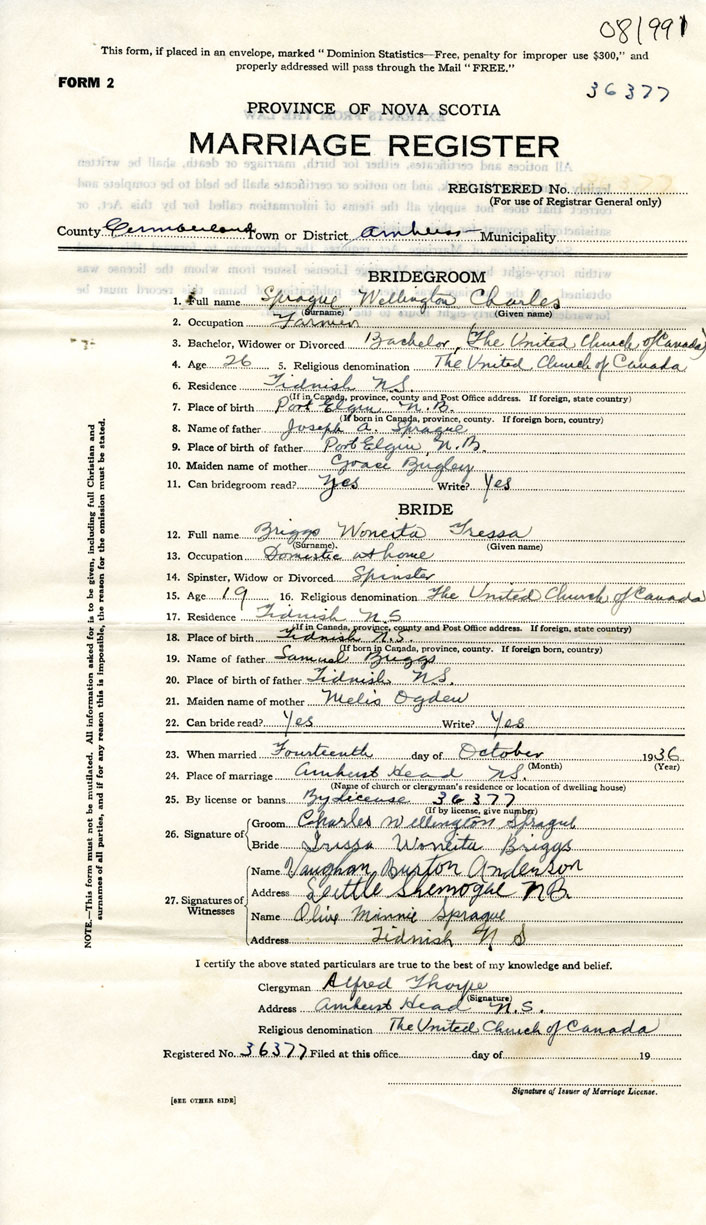 08199
This form, if placed in an envelope, marked "Dominion Statistics—Free, penalty for improper use $300," and
properly addressed will pass through the Mail "FREE."
FORM 2
36377
PROVINCE OF NOVA SCOTIA
MARRIAGE REGISTER
REGISTERED No.
(For use of Registrar General only)
County Cumberland Town or District Amherst Municipality
BRIDEGROOM
1. Full name Sprague Wellington Charles
(Surname) (Given name)
2. Occupation Farmer
3. Bachelor, Widower or Divorced Bachelor (The United Church of Canada)
4. Age 26 5. Religious denomination The United Church of Canada
6. Residence Tidnish N.S.
(If in Canada, province, county and Post Office address. If foreign, state country)
7. Place of birth Port Elgin N.B.
(If born in Canada, province, county. If foreign born, country)
8. Name of father Joseph A. Sprague
9. Place of birth of father Port Elgin N.B.
10. Maiden name of mother Grace Bugley
11. Can bridegroom read? Yes Write? Yes
BRIDE
12. Full name Briggs Woneita Tressa
(Surname). (Given name)
13. Occupation Domestic at home
14. Spinster, Widow or Divorced Spinster
15. Age 19 16. Religious denomination The United Church of Canada
17. Residence Tidnish N.S
(If in Canada, province, county and Post Office address. If foreign, state country)
18. Place of birth Tidnish N.S.
(If born in Canada, province, county. If foreign born, country)
19. Name of father Samuel Briggs
20. Place of birth of father Tidnish N.S.
21. Maiden name of mother Melis Ogden
22. Can bride read? Yes Write? Yes
23. When married Fourteenth day of October 1936
(Month) (Year)
24. Place of marriage Amherst Head N.S.
(Name of church or clergyman's residence or location of dwelling house)
25. By license or banns By License 36377
(If by license, give number)
26. Signature of Groom Charles Wellington Sprague
Bride Tressa Woneita Briggs
27. Signatures of Witnesses
Name Vaughan Burton Anderson
Address Little Shemogue NB
Name Olive Minnie Sprague
Address Tidnish N S
I certify the above stated particulars are true to the best of my knowledge and belief.
Clergyman Alfred Thorpe
(Signature)
Address Amherst Head N.S.
Religious denomination The United Church of Canada
Registered No. 36377 Filed at this office day of 19
Signature of Issuer of Marriage License.
[SEE OTHER SIDE]
NOTE.—This form must not be mutilated. All information asked for is to be given, including full Christian and
surnames of all parties, and if for any reason this is impossible, the reason for the omission must be stated.